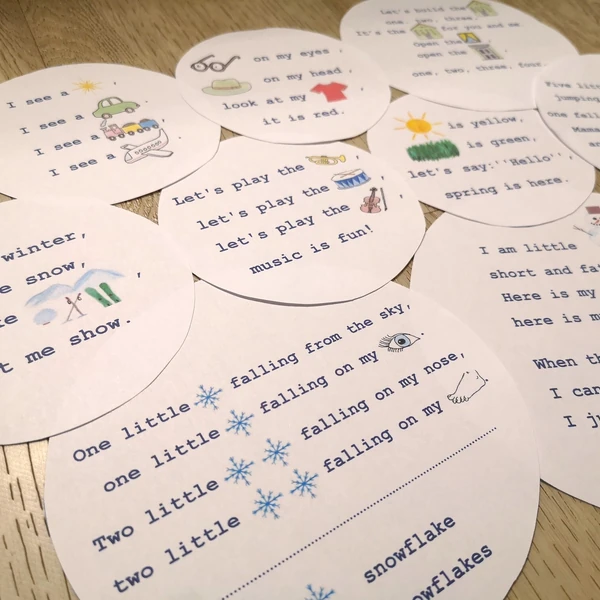 Let's build the
one, two, three,
It's the for you and me.
Open the
open the ,
one, two, three, four.
on my eyes,
on my head,
look at my ,
it is red.
I see a ,
I see a ,
I see a ,
I see a .
Five
jumping
one
Mama
is yellow,
is green,
let's say:''Hello'',
spring is here.
Let's play the ,
let's play the ,
let's play the ,
music is fun!
winter,
snow,
,
me show.
I am little
short and
Here is my
here is
When
I
I
One little falling from the sky,
one little falling on my .
Two little falling on my nose,
two little falling on my .
snowflake